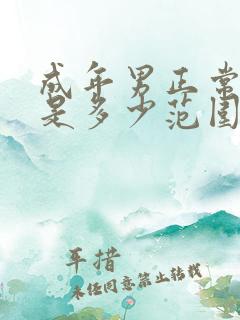 成年男正常
是多少范围
年措
未经同意禁止转载